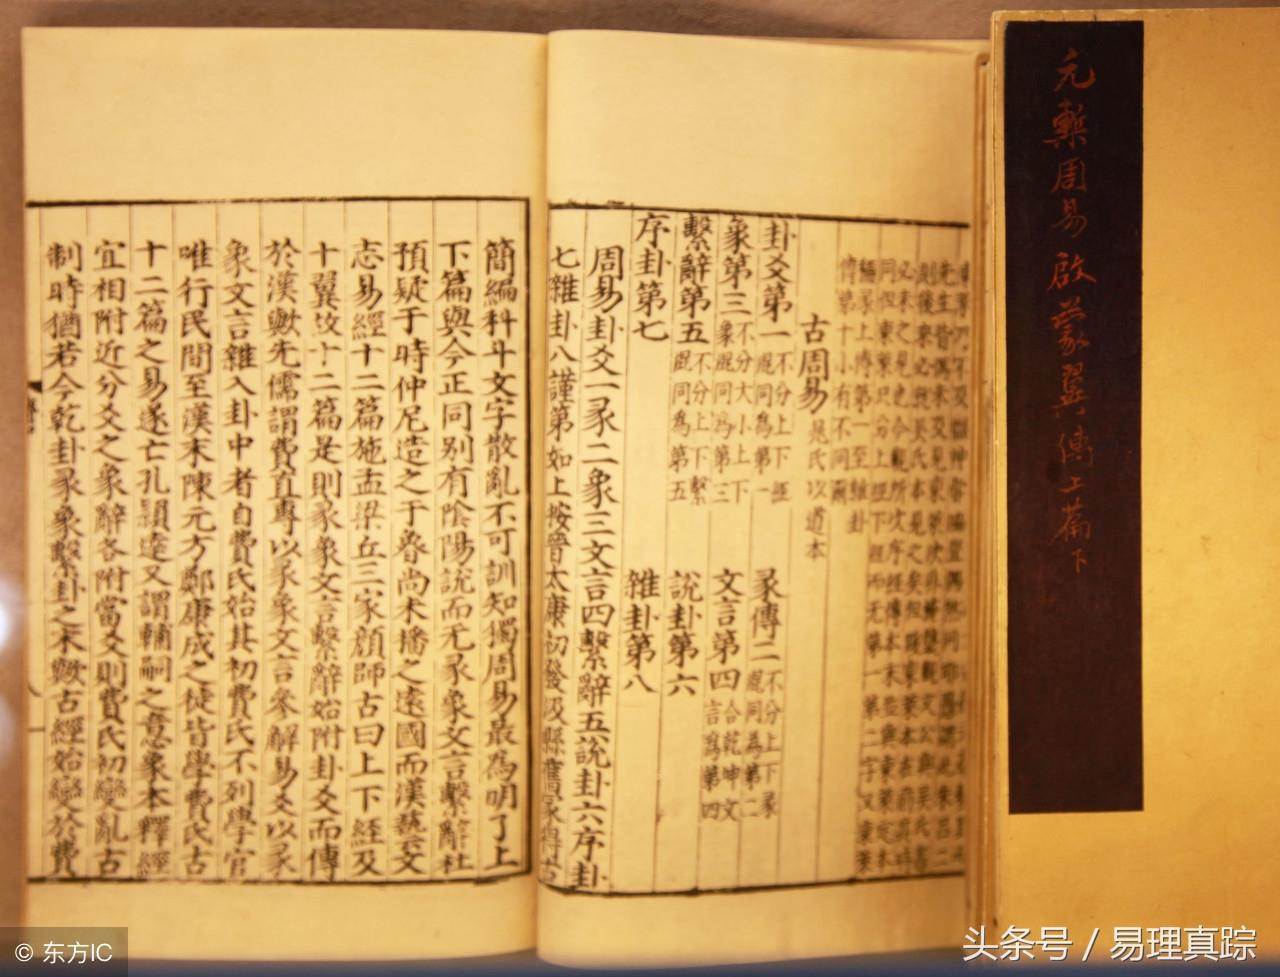 元槧周易啟蒙翼傳上篇下
傳第十小有不同爾
古周易 晁氏以道本
卦爻第一 不分上下經 混同為第一
彖傳二 不分上下彖 混同為第二
象第三 不分大小上下象 混同為第三
文言第四 合乾坤文言為第四
繫辭第五 不分上下繫 混同為第五
說卦第六
序卦第七
雜卦第八
周易卦爻一彖二象三文言四繫辭五說卦六序卦
七雜卦八謹第如上按晉太康初發汲縣舊冢得古
簡編科斗文字散亂不可訓知獨周易最為明了上
下篇與今正同別有陰陽說而无彖象文言繫辭杜
預疑于時仲尼造之于魯尚未播之遠國而漢藝文
志易經十二篇施孟梁丘三家顏師古曰上下經及
十翼故十二篇是則彖象文言繫辭始附卦爻而傳
於漢歟先儒謂費直專以彖象文言參解易爻以彖
象文言雜入卦中者自費氏始其初費氏不列學官
唯行民間至漢末陳元方鄭康成之徒皆學費氏古
十二篇之易遂亡孔穎達又謂輔嗣之意象本釋經
宜相附近分爻之象辭各附當爻則費氏初變亂古
制時猶若今乾卦彖象繫卦之末歟古經始變於費
© 东方IC
头条号 / 易理真踪